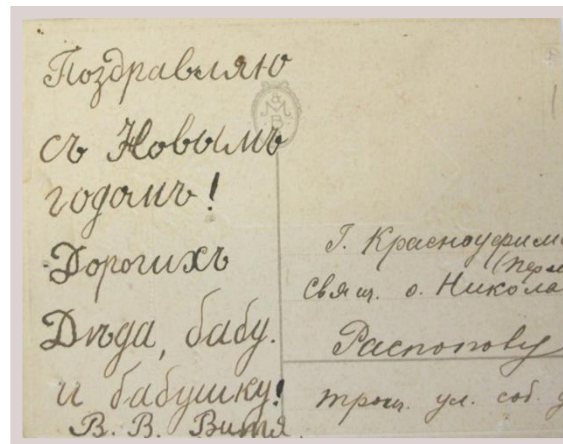 Поздравляю
съ Новымъ
годомъ!
Дорогихъ
Дѣда, бабу.
и бабушку!
В. В. Витя.
Г. Красноуфим
(Перм
Свящ. о. Никола
Распопову
Троиц. ул. соб. д